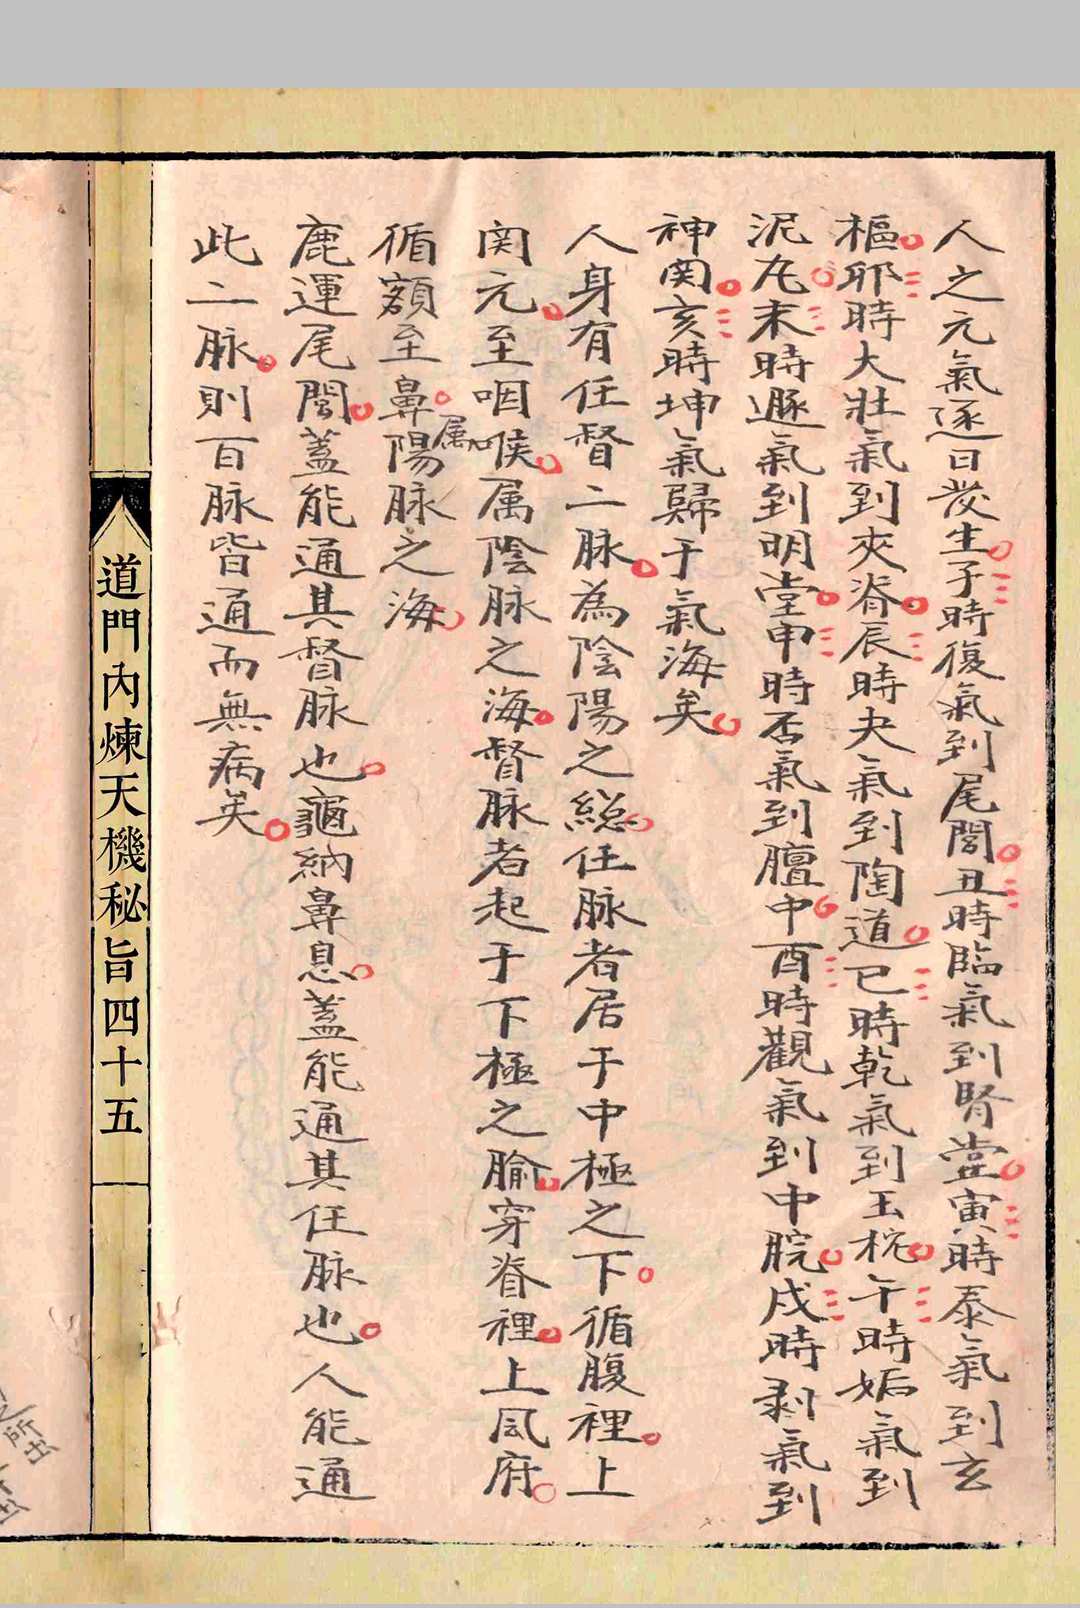 人之元氣逐日發生子時復氣到尾閭丑時臨氣到腎堂寅時泰氣到玄
樞耶時大壯氣到夾脊辰時夬氣到陶道巳時乾氣到玉枕午時姤氣到
泥丸末時遯氣到明堂申時否氣到膻中酉時觀氣到中脘戌時剥氣到
神関亥時坤氣歸于氣海矣
人身有任督二脉為陰陽之総任脉者居于中極之下循腹裡上
関元至咽喉属陰脉之海督脉者起于下極之腧穿脊裡上风府
循額至鼻属陽脉之海
鹿運尾閭蓋能通其督脉也龜納鼻息蓋能通其任脉也人能通
此二脉則百脉皆通而無病矣
道門内煉天機秘旨四十五
之所出